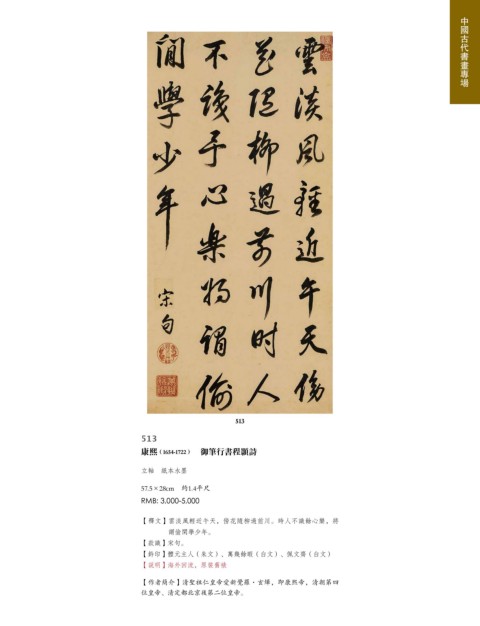 中國古代書畫專場
雲淡風輕近午天傍
花隨柳過前川时人
不識予心樂將謂偷
閒學少年
宋句
513
513
康熙（1654-1722） 御筆行書程顥詩
立軸 紙本水墨
57.5×28cm 約1.4平尺
RMB: 3,000-5,000
【釋文】雲淡風輕近午天，傍花隨柳過前川。時人不識餘心樂，將
謂偷閒學少年。
【款識】宋句。
【鈐印】體元主人（朱文）、萬幾餘暇（白文）、佩文齋（白文）
【說明】海外回流，原裝舊裱
【作者簡介】清聖祖仁皇帝愛新覺羅·玄燁，即康熙帝，清朝第四
位皇帝。清定都北京後第二位皇帝。